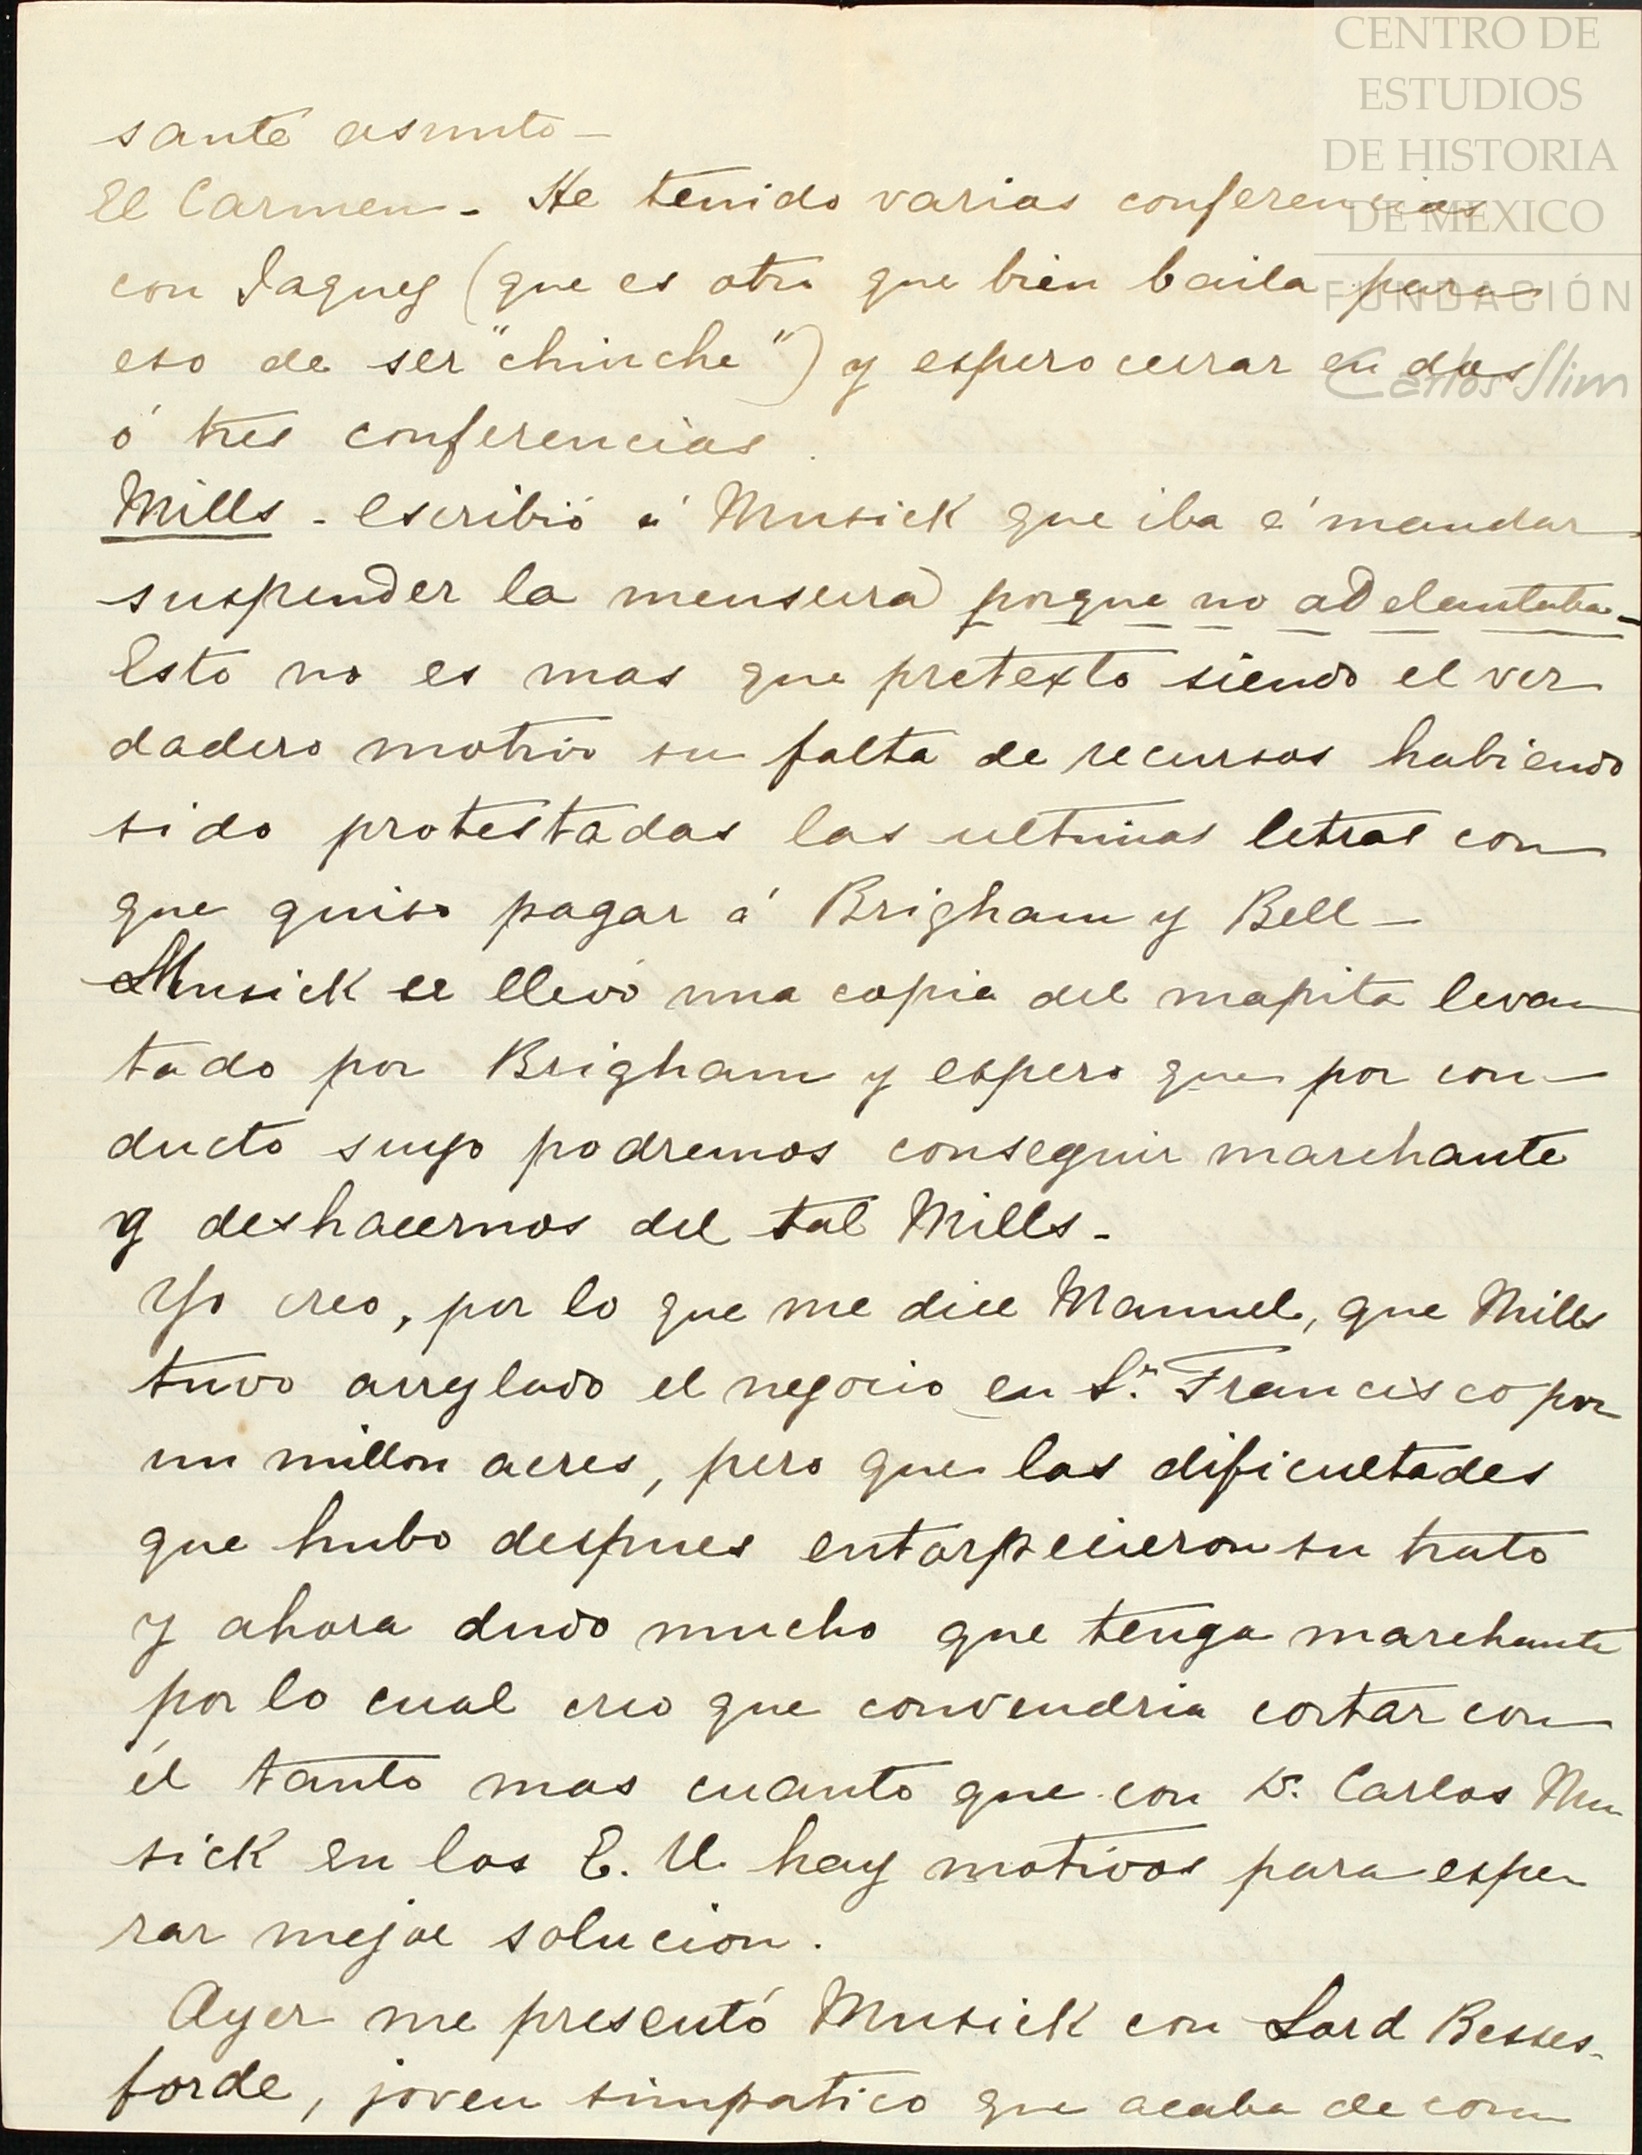 CENTRO DE
ESTUDIOS
DE HISTORIA
DE MEXICO
FUNDACIÓN
Carlos Slim
sante asunto –
El Carmen – He tenido varias conferencias
con Jaques (que es otro que bien baila para
eso de ser "chinche") y espero cerrar en dos
ó tres conferencias.
Mills – escribió á Musick que iba á mandar
suspender la mensura porque no adelantaba –
Esto no es mas que pretexto siendo el ver
dadero motivo su falta de recursos habiendo
sido protestadas las ultimas letras con
que quiso pagar á Brigham y Bell –
Musick se llevó una copia del mapita levan
tado por Brigham y espero que por con–
ducto suyo podremos conseguir marchante
y deshacernos del tal Mills –
Yo creo, por lo que me dice Manuel, que Mills
tuvo arreglado el negocio en Sn. Francisco por
un millon acres, pero que las dificultades
que hubo despues entorpecieron su trato
y ahora dudo mucho que tenga marchante
por lo cual creo que convendria cortar con
él tanto mas cuanto que con D. Carlos Mu
sick en los E. U. hay motivos para espe
rar mejor solucion.
Ayer me presentó Musick con Lord
forde, joven simpatico que acaba de com